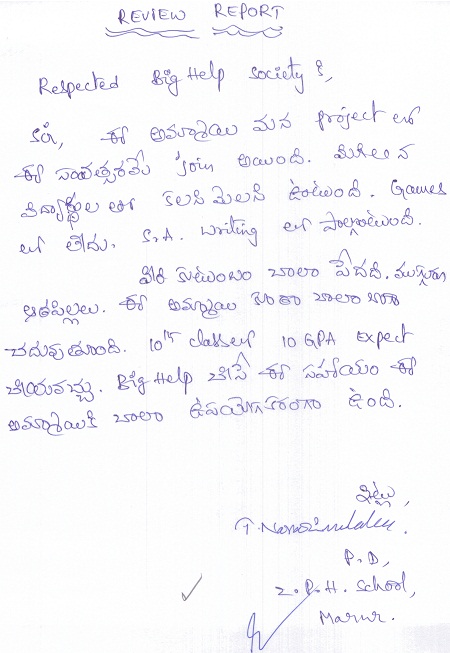 REVIEW REPORT
Respected Big Help Society కి,
Sir, ఈ అమ్మాయి మన project లో
ఈ సంవత్సరమే Join అయింది. మిగిలిన
విద్యార్థుల తో కలసి మెలసి ఉంటుంది. Games
లో లేదు. S.A. writing లో పాల్గొంటుంది.
వీరి కుటుంబం చాలా పేదది. ముగ్గురు
ఆడపిల్లలు. ఈ అమ్మాయి కూడా చాలా బాగా
చదువుతూంది. 10th classలో 10 GPA Expect
చేయవచ్చు. Big Help చేసే ఈ సహాయం ఈ
అమ్మాయికి చాలా ఉపయోగకరంగా ఉంది.
ఇట్లు,
P.D,
Z.P.H. School,
Marur.